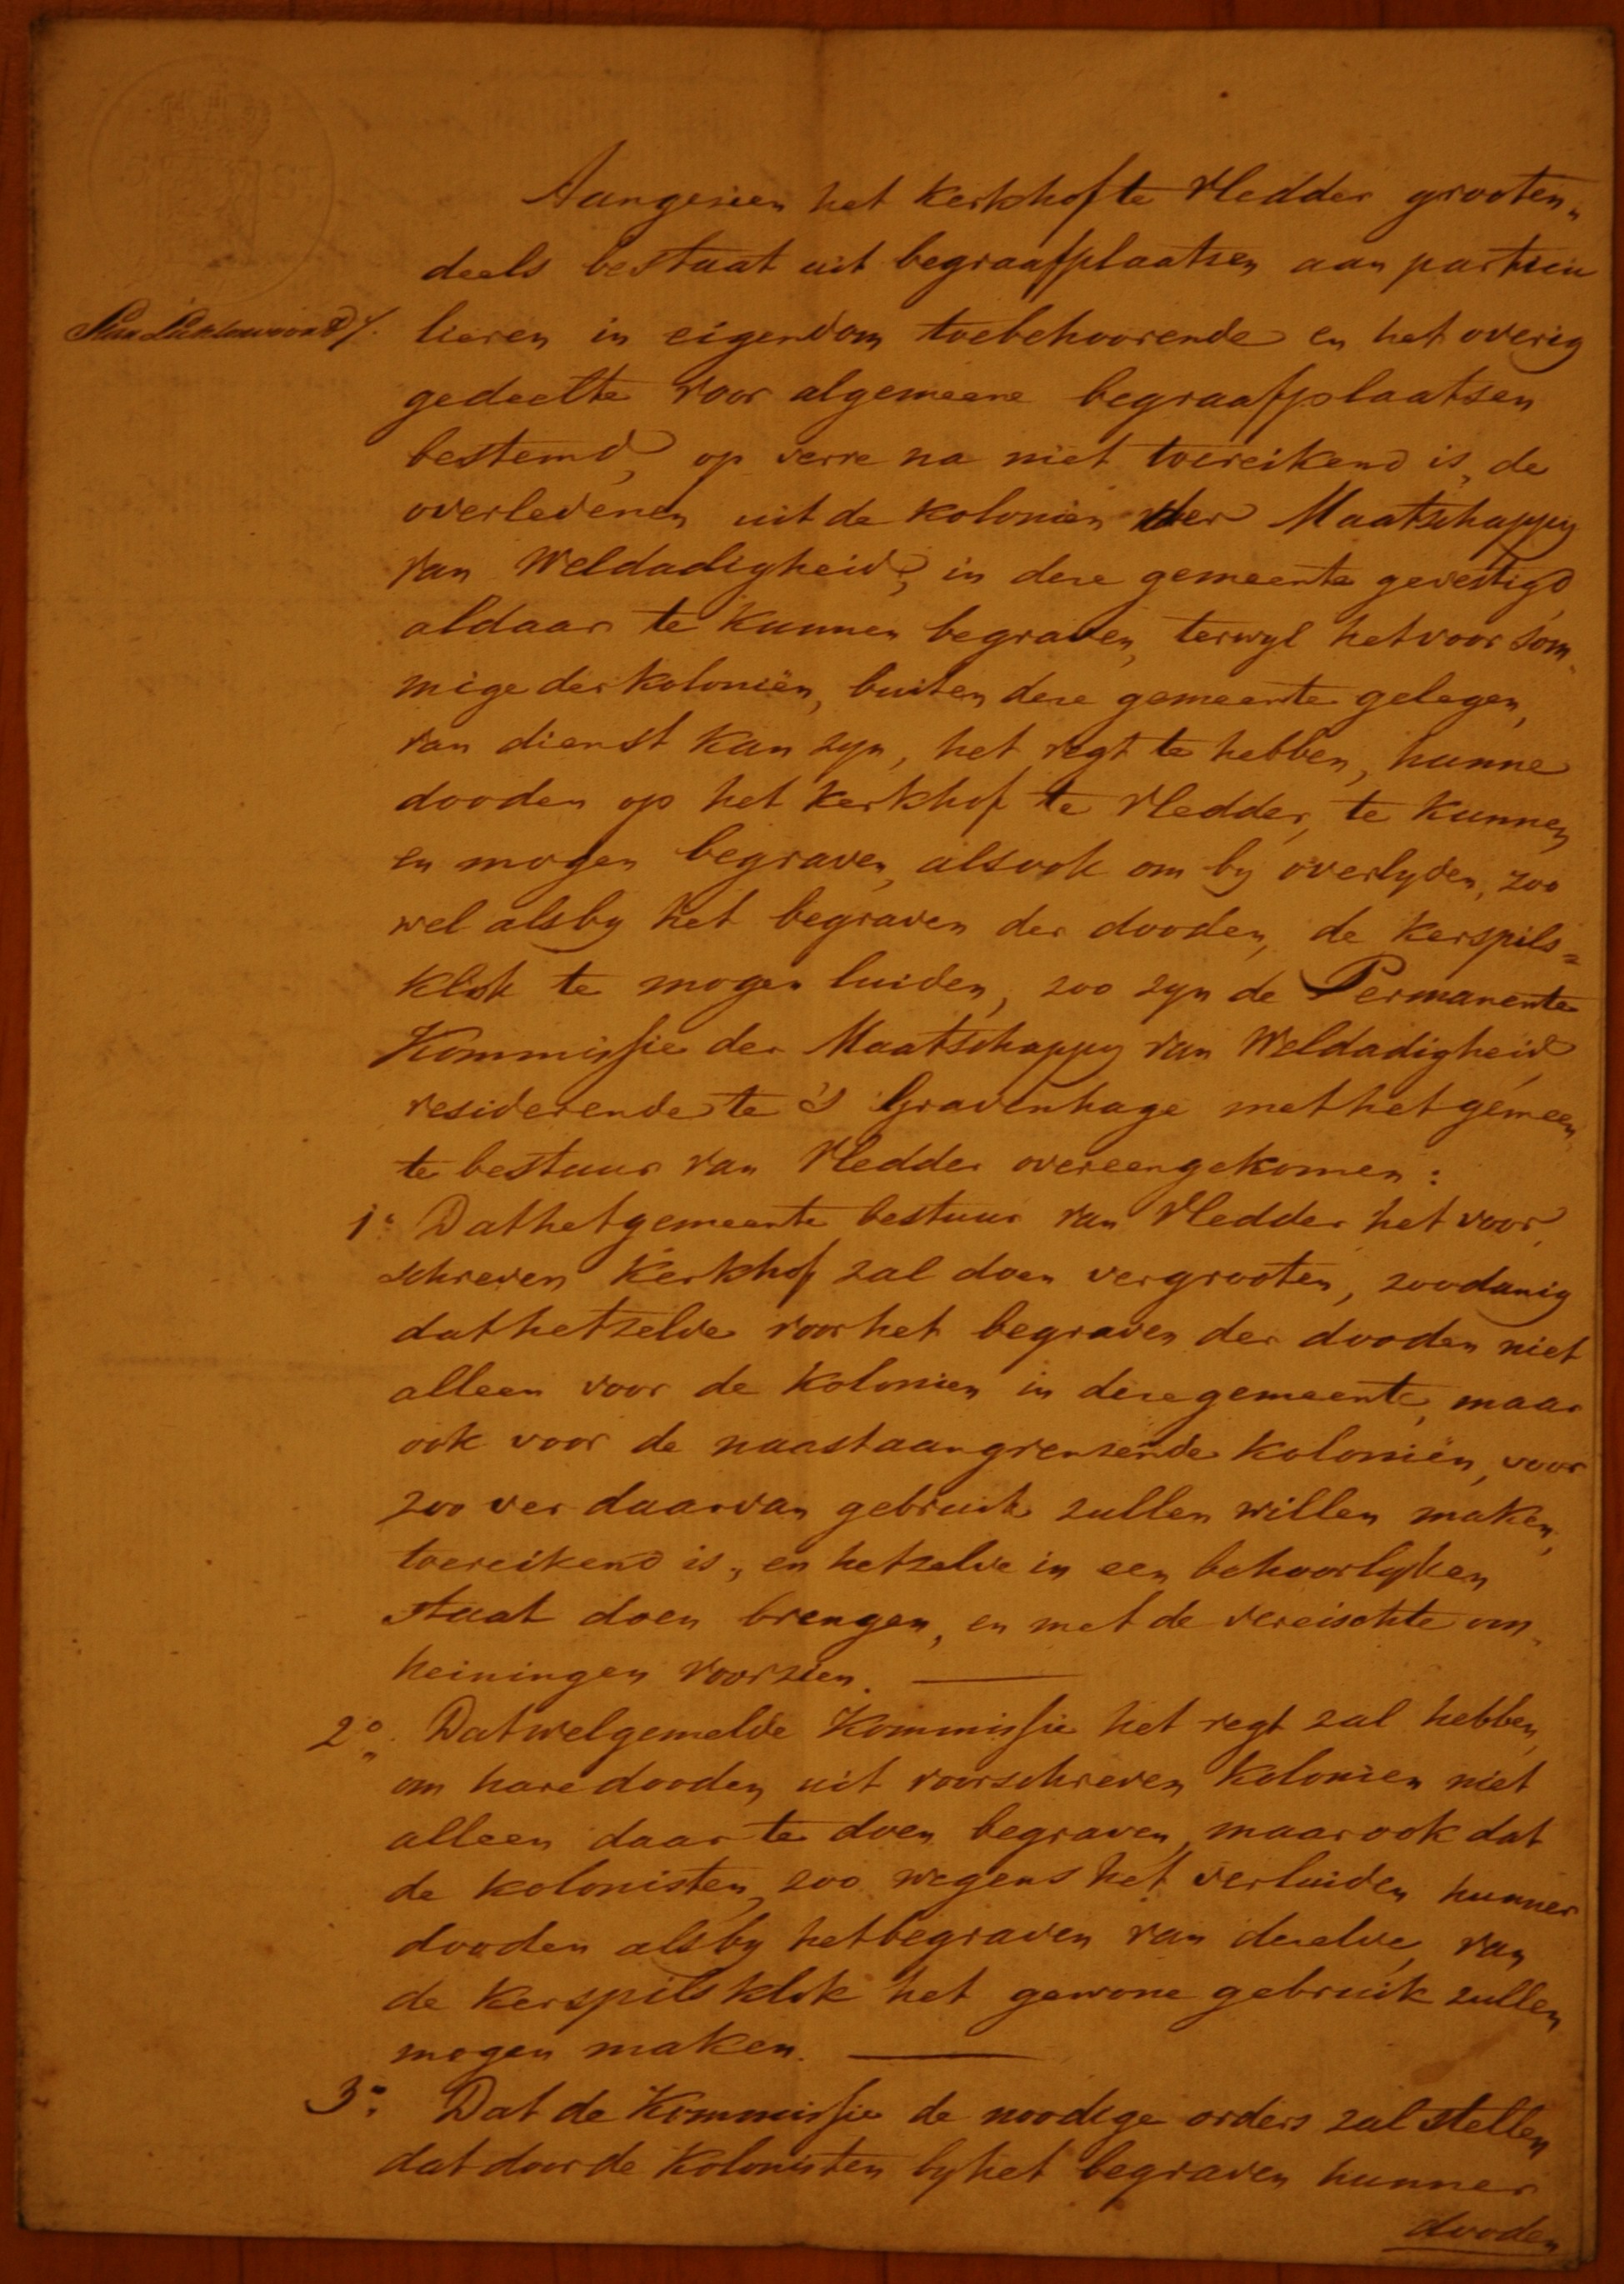 Aangezien het Kerkhof te Vledder grooten„
deels bestaat uit begraafplaatsen aan particu
lieren in eigendom toebehoorende en het overig
gedeelte voor algemeene begraafplaatsen
bestemd, op verre na niet toereikend is, de
overledenen uit de kolonien der Maatschappy
van Weldadigheid, in deze gemeente gevestigd,
aldaar te kunnen begraven, terwyl het voor som„
mige der koloniën, buiten deze gemeente gelegen,
van dienst kan zyn, het regt te hebben, hunne
dooden op het Kerkhof te Vledder, te kunnen
en mogen begraven, alsook om by overlyden, zoo
wel als by het begraven der dooden, de Kerspils=
klok te mogen luiden, zoo zyn de Permanente
Kommissie der Maatschappy van Weldadigheid
residerende te 's Gravenhage met het gemeen„
te bestuur van Vledder overeengekomen:
1o Dat het gemeente bestuur van Vledder het voor„
schreven Kerkhof zal doen vergrooten, zoodanig
dat hetzelve voor het begraven der dooden niet
alleen voor de Kolonien in deze gemeente, maar
ook voor de naastaangrenzende Koloniën, voor
zoo ver daarvan gebruik zullen willen maken,
toereikend is, en hetzelve in een behoorlyken
staat doen brengen, en met de vereischte om„
heiningen voorzien.
2o. Dat welgemelde Kommissie het regt zal hebben,
om hare dooden uit voorschreven Kolonien niet
alleen daar te doen begraven, maar ook dat
de kolonisten, zoo wegens het verluiden hunner
dooden als by het begraven van dezelve, van
de Kerspils klok het gewone gebruik zullen
mogen maken.
3o. Dat de Kommissie de noodige orders zal stellen
dat door de Kolonisten by het begraven hunner
dooden